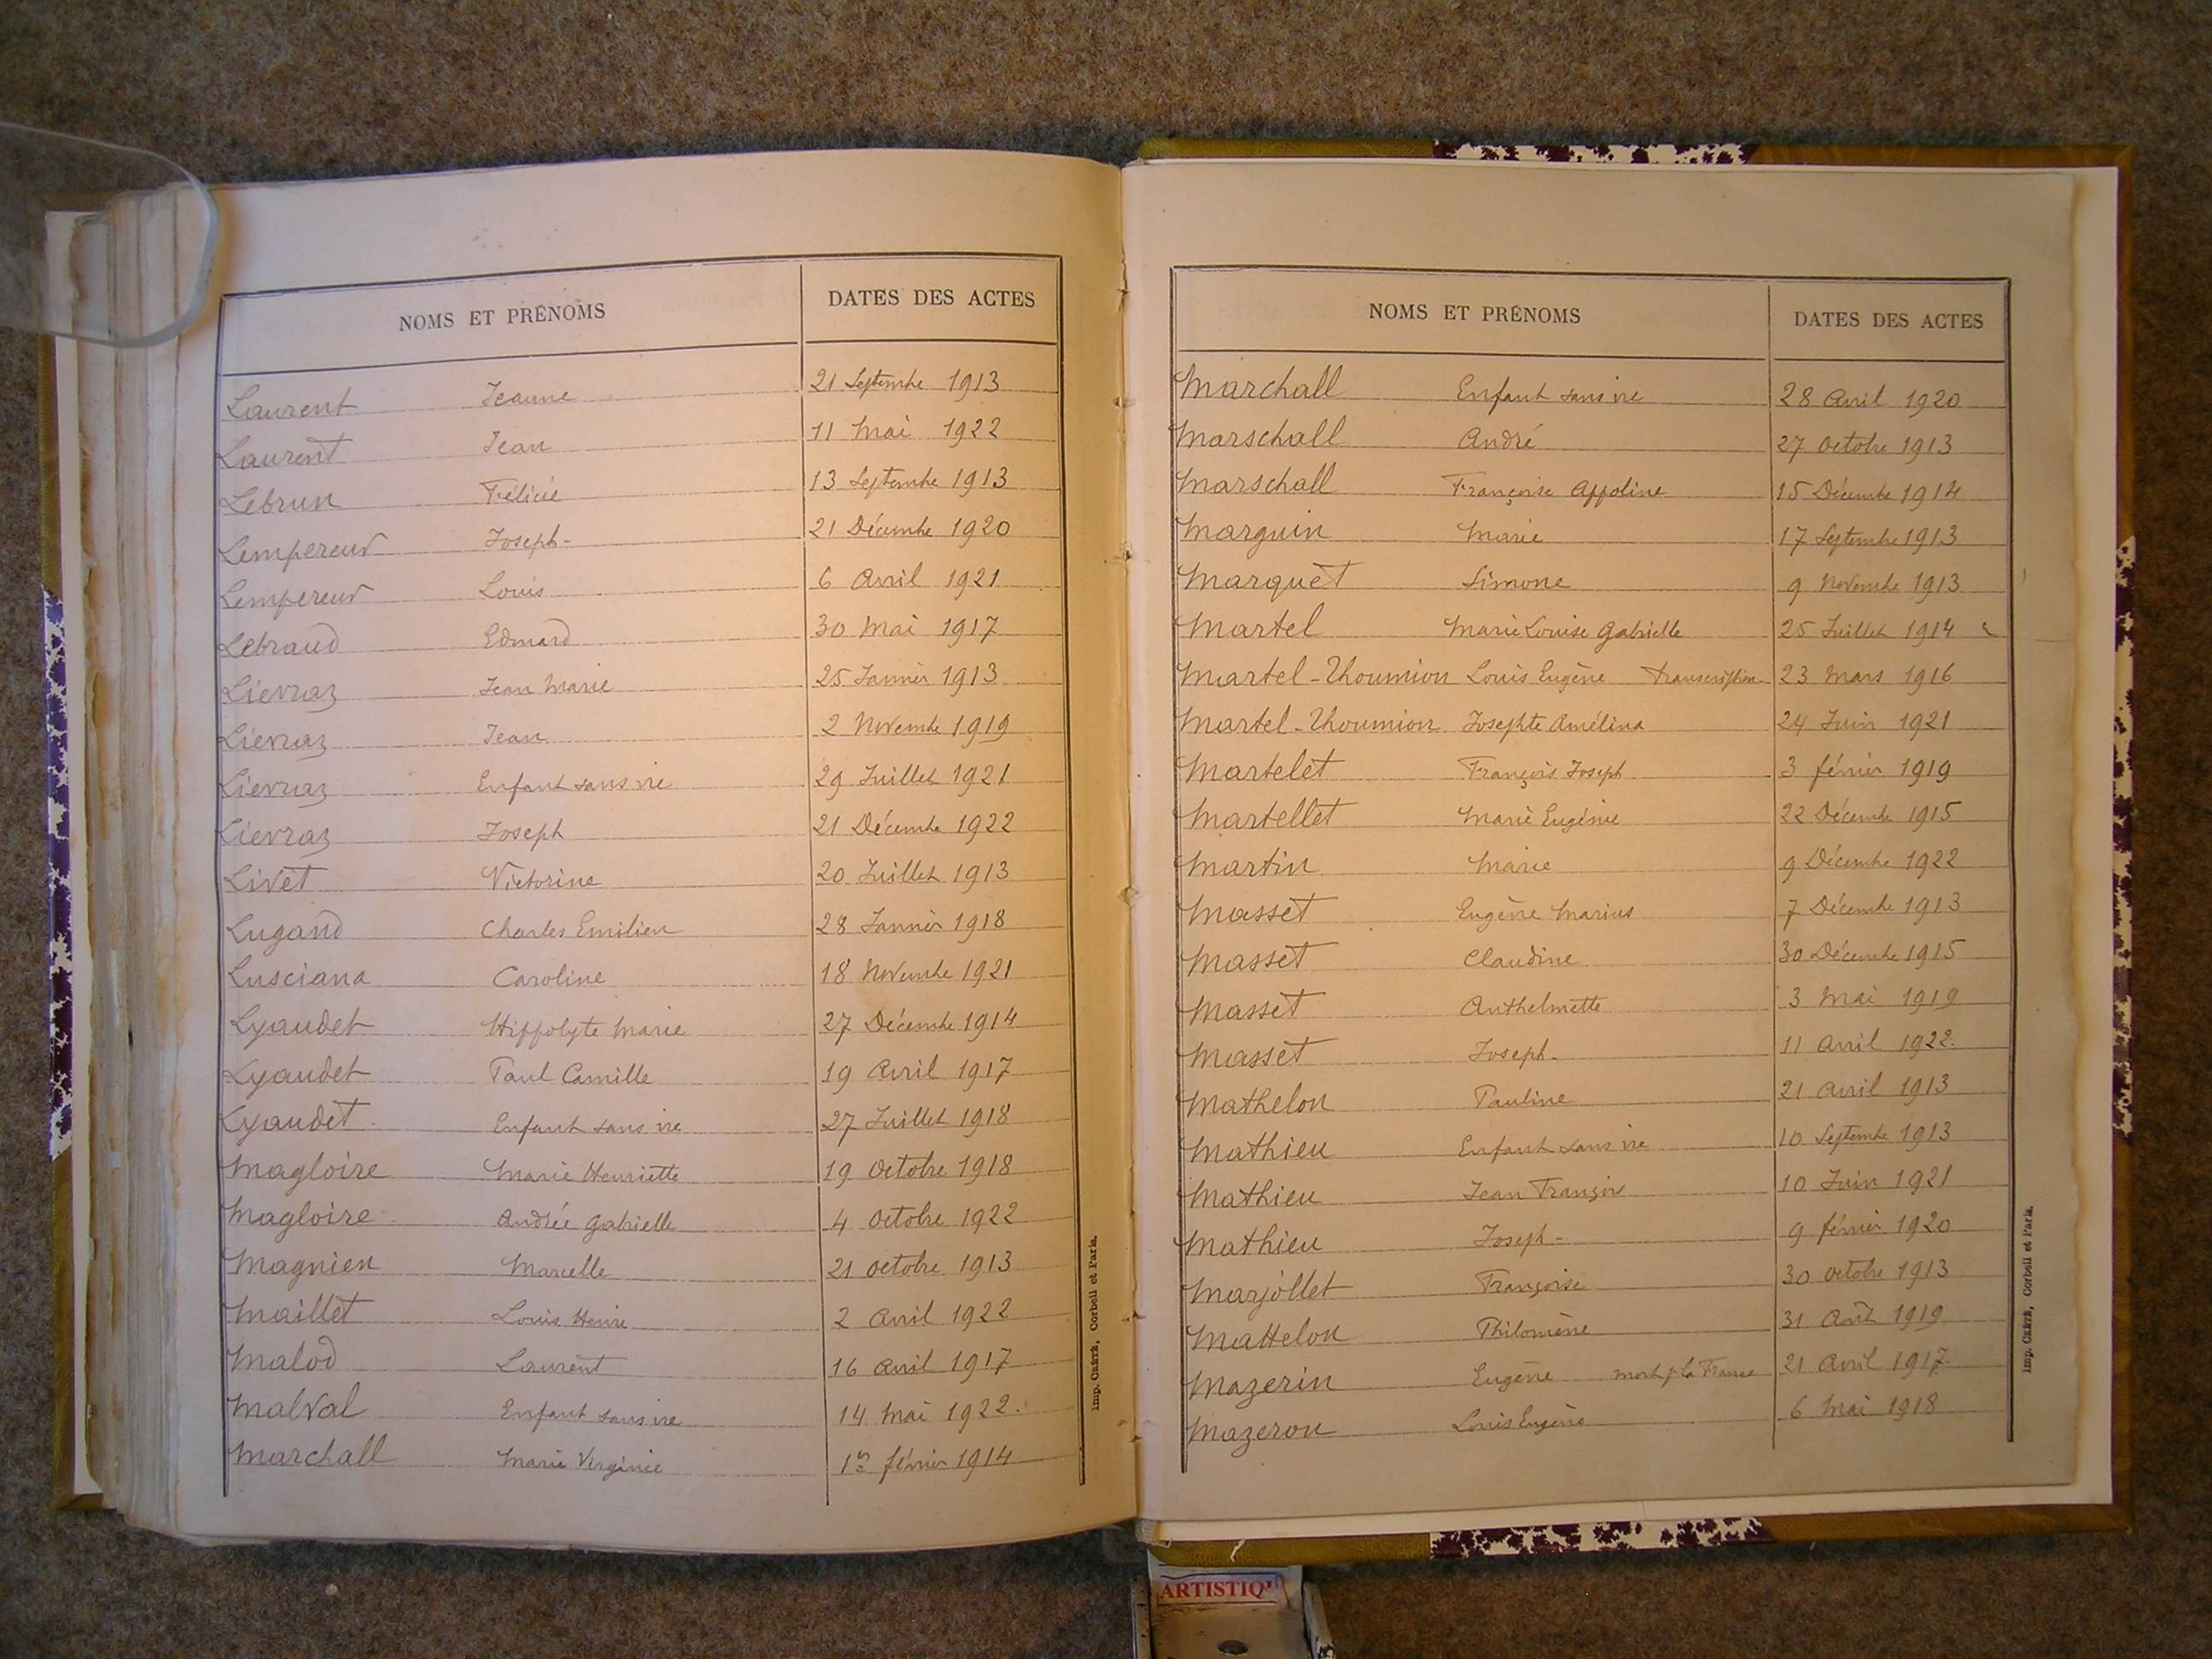 NOMS ET PRÉNOMS DATES DES ACTES
Laurent Jeanne 21 Septembre 1913
Laurent Jean 11 Mai 1922
Lebrun Félicie 13 Septembre 1913
Lempereur Joseph 21 Décembre 1920
Lempereur Louis 6 Avril 1921
Lebraud Edmard 30 Mai 1917
Lievraz Jean Marie 25 Janvier 1913
Lievraz Jean 2 Novembre 1919
Lievraz Enfant sans vie 29 Juillet 1921
Lievraz Joseph 21 Décembre 1922
Livet Victorine 20 Juillet 1913
Lugand Charles Emilien 28 Janvier 1918
Lusciana Caroline 18 Novembre 1921
Lyaudet Hippolyte Marie 27 Décembre 1914
Lyaudet Paul Camille 19 Avril 1917
Lyaudet Enfant sans vie 27 Juillet 1918
Magloire Marie Henriette 19 Octobre 1918
Magloire Andrée Gabrielle 4 Octobre 1922
Magnien Marcelle 21 Octobre 1913
Maillet Louis Henri 2 Avril 1922
Malod Laurent 16 Avril 1917
Malval Enfant sans vie 14 Mai 1922.
Marchall Marie Virginie 1er février 1914
Imp. Crété, Corbeil et Paris.
NOMS ET PRÉNOMS DATES DES ACTES
Marchall Enfant sans vie 28 Avril 1920
Marschall André 27 Octobre 1913
Marschall Françoise Appoline 15 Décembre 1914
Marguin Marie 17 Septembre 1913
Marquet Simone 9 Novembre 1913
Martel Marie Louise Gabrielle 25 Juillet 1914
Martel-Thoumion Louis Eugène Transcription 23 Mars 1916
Martel-Thoumion Josephte Amélina 24 Juin 1921
Martelet François Joseph 3 février 1919
Martellet Marie Eugénie 22 Décembre 1915
Martin Marie 9 Décembre 1922
Masset Eugène Marius 7 Décembre 1913
Masset Claudine 30 Décembre 1915
Masset Anthelmette 3 Mai 1919
Masset Joseph 11 Avril 1922.
Mathelon Pauline 21 Avril 1913
Mathieu Enfant sans vie 10 Septembre 1913
Mathieu Jean François 10 Juin 1921
Mathieu Joseph 9 février 1920
Marjollet Françoise 30 Octobre 1913
Mattelon Philomène 31 Août 1919
Mazerin Eugène mort p. la France 21 Avril 1917.
Mazeron Louis Eugène 6 Mai 1918
Imp. Crété, Corbeil et Paris.
ARTISTIQ